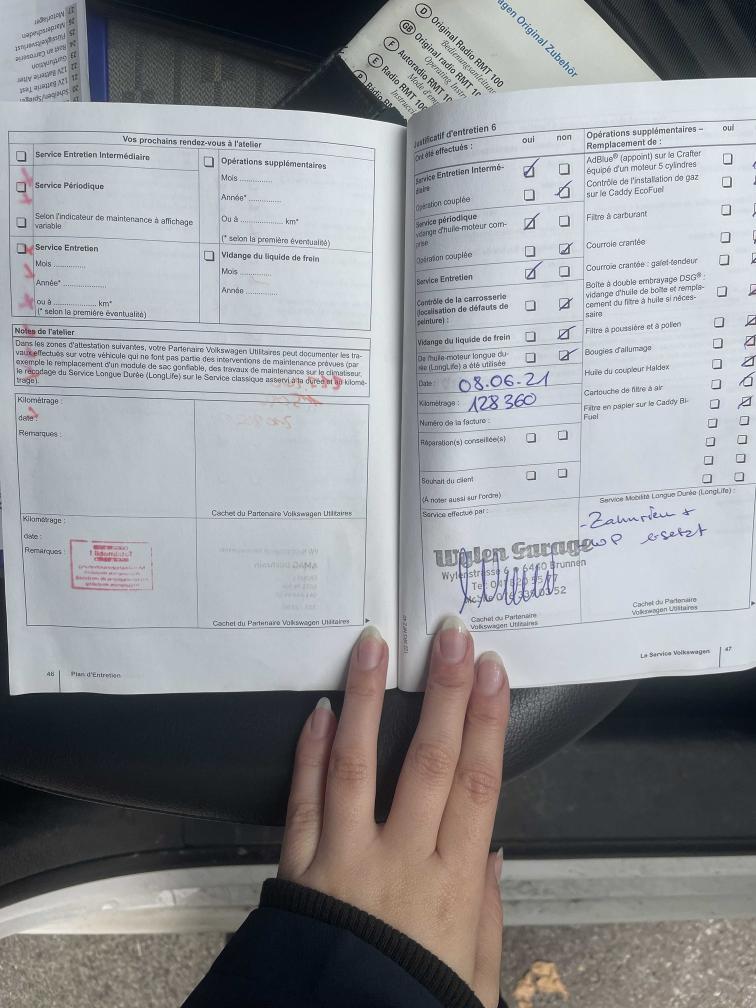 27 Motorlager
26 Marderschaden
25 Flüssigkeitsverlust
24 Rost an Carrosserie
23 Gurtfunktion
22 12V Batterie Alter
21 12V Batterie Test
20 Scheiben/Spiegel
agen Original Zubehör
D Original Radio RMT 100
Bedienungsanleitung
GB Original radio RMT 10
Operating Instru
F Autoradio RMT 10
Mode d'em
E Radio RMT 100
Instrucci
P Radio RMT
Vos prochains rendez-vous à l'atelier
Service Entretien Intermédiaire
Service Périodique
Selon l'indicateur de maintenance à affichage
variable
Service Entretien
Mois ..............
Année* ..............
ou à .................... km*
(* selon la première éventualité)
Opérations supplémentaires
Mois ..............
Année* ..............
Ou à .................... km*
(* selon la première éventualité)
Vidange du liquide de frein
Mois ..............
Année ..............
Notes de l'atelier
Dans les zones d'attestation suivantes, votre Partenaire Volkswagen Utilitaires peut documenter les tra-
vaux effectués sur votre véhicule qui ne font pas partie des interventions de maintenance prévues (par
exemple le remplacement d'un module de sac gonflable, des travaux de maintenance sur le climatiseur,
le recodage du Service Longue Durée (LongLife) sur le Service classique asservi à la durée et au kilomé-
trage).
Kilométrage :
date :
Remarques :
Cachet du Partenaire Volkswagen Utilitaires
Kilométrage :
date :
Remarques :
Cachet du Partenaire Volkswagen Utilitaires
46 Plan d'Entretien
Justificatif d'entretien 6
Ont été effectués :
oui non
Service Entretien Intermé-
diaire
Opération couplée
Service périodique
vidange d'huile-moteur com-
prise
Opération couplée
Service Entretien
Contrôle de la carrosserie
(localisation de défauts de
peinture) :
Vidange du liquide de frein
De l'huile-moteur longue du-
rée (LongLife) a été utilisée
Date : 08.06-21
Kilométrage : 128 360
Numéro de la facture :
Réparation(s) conseillée(s)
Souhait du client
(A noter aussi sur l'ordre)
Service effectué par :
Wylen Garage
Wylenstrasse 6440 Brunnen
Cachet du Partenaire
Volkswagen Utilitaires
Opérations supplémentaires –
Remplacement de :
oui
AdBlue® (appoint) sur le Crafter
équipé d'un moteur 5 cylindres
Contrôle de l'installation de gaz
sur le Caddy EcoFuel
Filtre à carburant
Courroie crantée
Courroie crantée : galet-tendeur
Boîte à double embrayage DSG® :
vidange d'huile de boîte et rempla-
cement du filtre à huile si néces-
saire
Filtre à poussière et à pollen
Bougies d'allumage
Huile du coupleur Haldex
Cartouche de filtre à air
Filtre en papier sur le Caddy Bi-
Fuel
Service Mobilité Longue Durée (LongLife) :
- Zahnriem +
WP ersetzt
Cachet du Partenaire
Volkswagen Utilitaires
Le Service Volkswagen 47